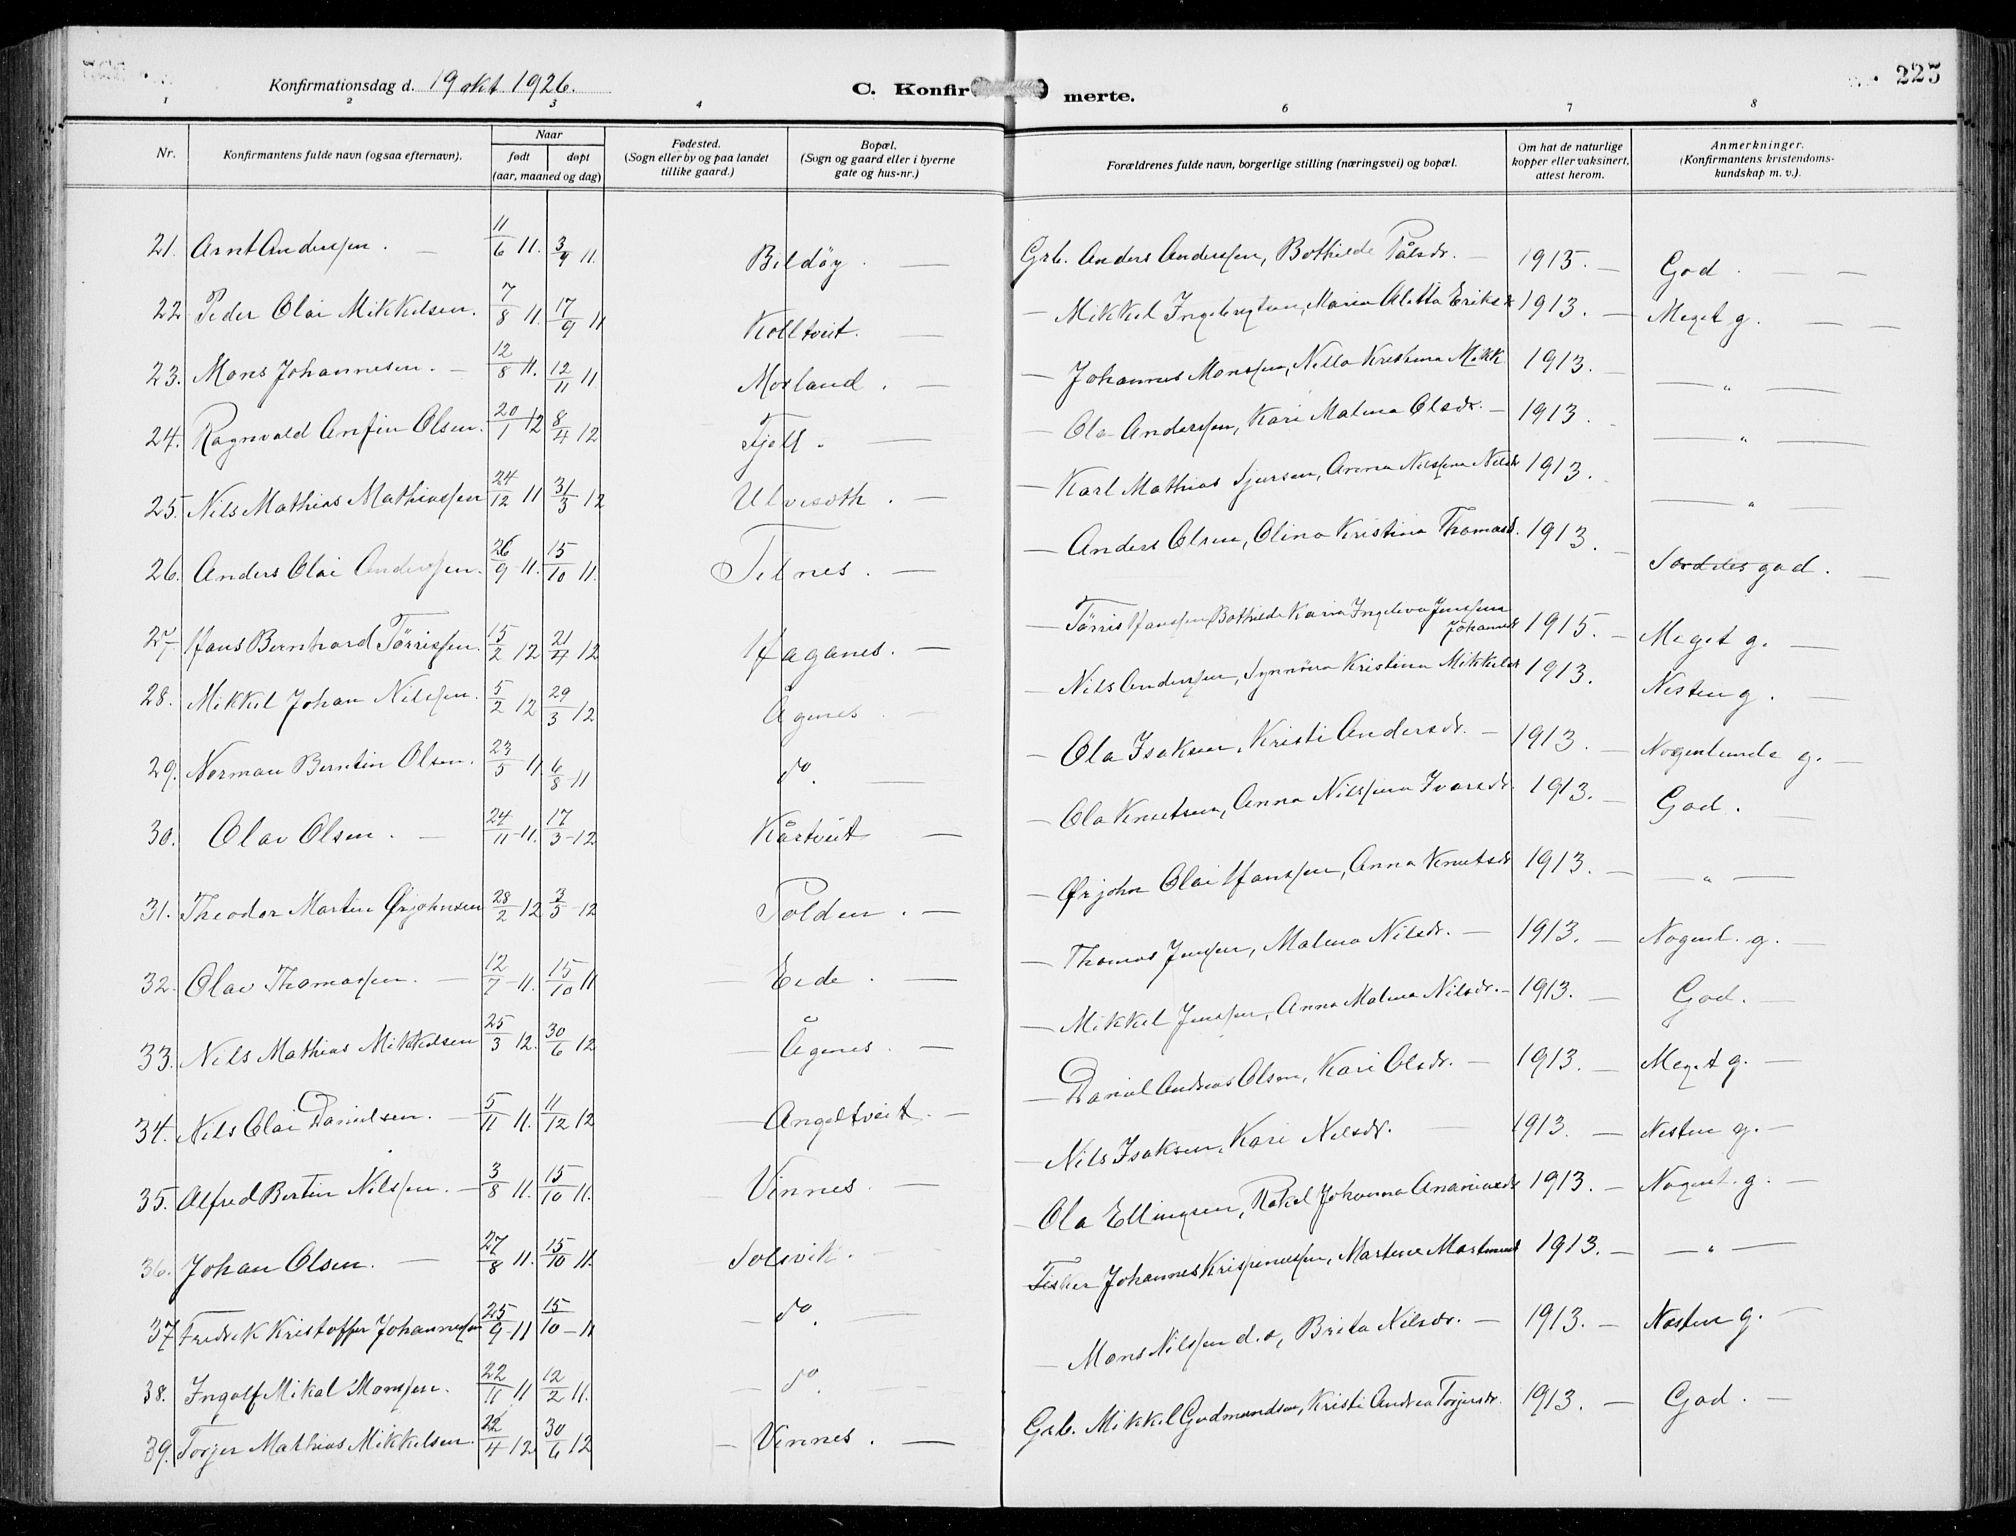 Konfirmationsdag d. 19 okt. 1926.
C. Konfirmerte.
225
1 2 3 4 6 7 8
Nr.
Konfirmantens fulde navn (ogsaa efternavn).
Naar
født døpt
(aar, maaned og dag)
Fødested.
(Sogn eller by og paa landet
tillike gaard.)
Bopæl.
(Sogn og gaard eller i byerne
gate og hus-nr.)
Forældrenes fulde navn, borgerlige stilling (næringsvei) og bopæl.
Om hat de naturlige
kopper eller vaksinert,
attest herom.
Anmerkninger.
(Konfirmantens kristendoms-
kundskap m. v.).
21. Arnt Anderssen. — 11/6 11. 3/9 11. Bildöy. — Grb. Anders Anderssen, Bothilde Pålsdr. — 1915. — God. — —
22 Peder Olai Mikkelsen. 7/8 11. 17/9 11 Kolltveit. — — Mikkel Ingebrigtsen, Maria Aletta Eriksd. 1913. — Meget g. — —
23. Mons Johannesen. — 12/8 11. 12/11 11 Morland. — — Johannes Monssen, Nilla Kristina Mikk. 1913. — — „ —
24. Ragnvald Anfin Olsen. 20/1 12 8/4 12 Fjell. — — Ola Anderssen, Kari Malina Olsdr. — 1913. — „ —
25. Nils Mathias Mathiassen 24/12 11 31/3 12 Ulvesæth. — — Karl Mathias Sjursen, Anna Nilssina Nilsdr 1913. — „ —
26. Anders Olai Anderssen. 26/9 - 11. 15/10 11. Tilnes. — — Anders Olsen, Olina Kristina Thomasd. 1913. — Særdeles god. —
27 Hans Bernhard Törrissen. 15/2 12 21/4 12 Haganes. — — Törris Hanssen Bothilde Karia Ingeleva Jenssen
Johannsd. 1915. — Meget g. —
28. Mikkel Johan Nilssen. 5/2 12 29/3 12 Ågenes. — — Nils Anderssen, Synnöva Kristina Mikkelsdr 1913. Nesten g. —
29. Norman Berntin Olsen. 23/5 11. 6/8 - 11 do. — — Ola Isaksen, Kristi Andersdr. — 1913. — Nogenlunde g. —
30. Olav Olsen. — 24/11 - 11. 17/3 - 12 Kårtveit — — Ola Knutsen, Anna Nilssina Ivarsdr. 1913. — God. —
31. Theodor Martin Ørjohnsen 28/2 12 3/5 - 12 Polden. — — Ørjohn Olai Hanssen, Anna Knutsdr 1913. — — „ —
32. Olav Thomassen. — 12/7 - 11. 15/10 11 — Eide. — — Thomas Jenssen, Malina Nilsdr. — 1913. — Nogenl. g. —
33. Nils Mathias Mikkelsen 25/3 12. 30/6 12 — Ågenes. — — Mikkel Jenssen, Anna Malina Nilsdr. — 1913. — God. —
34. Nils Olai Danielsen. — 5/11 11. 11/12 12 — Angeltveit. — — Daniel Andreas Olsen, Kari Olsdr. — 1913. — Meget g. —
35. Alfred Bertin Nilssen. — 3/8 11. 15/10 11. Vinnes. — — Nils Isaksen, Kari Nilsdr. — 1913. — Nesten g. —
36. Johan Olsen. — 27/8 11. 15/10 11. — Solsvik. — — Ola Ellingsen, Rakel Johanna Ananiasdr 1913. — Nogenl. g. —
37 Fredrik Kristoffer Johannessen 25/9 - 11 15/10 - 11 — do. — Fisker Johannes Krispenussen, Martine Martinusd 1913. — — „ —
38. Ingolf Mikal Monssen. 22/11 11 12/2 11. — do. — — Mons Nilssen d.o, Brita Nilsdr. — 1913. — Nesten g. —
39. Torjer Mathias Mikkelsen. 22/4 12 30/6 12 — Vinnes. — Grb. Mikkel Gudmundsen, Kristi Andrea Torjersdr. 1913. — God. —